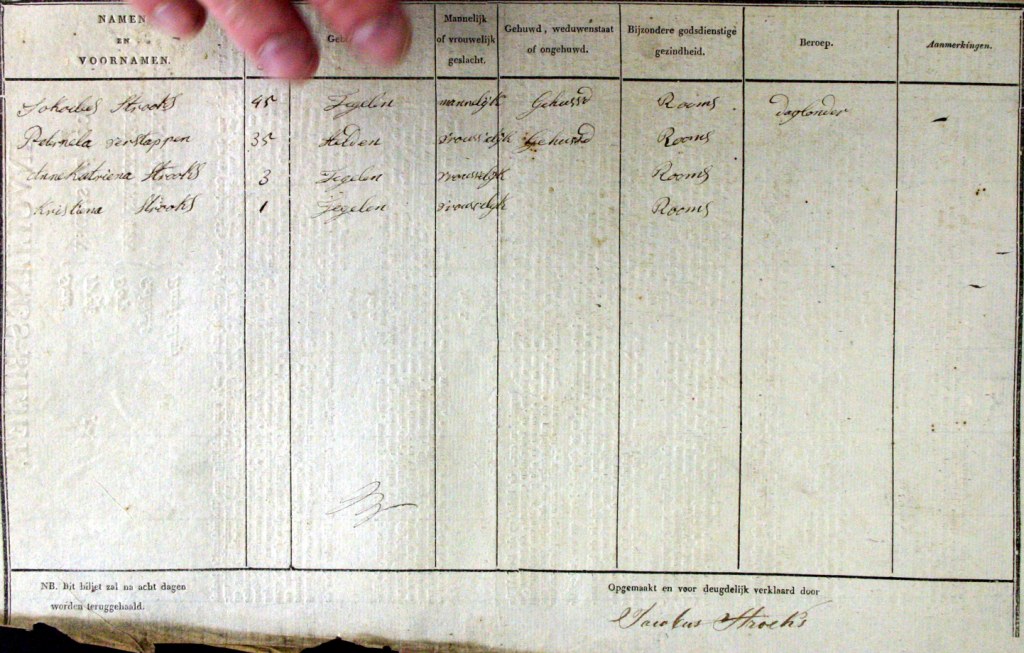 NAMEN EN VOORNAMEN. Mannelijk of vrouwelijk geslacht. Gehuwd, weduwenstaat of ongehuwd. Bijzondere godsdienstige gezindheid. Beroep. Aanmerkingen.
Strooks 45 Tegelen mannelijk Gehuwd Rooms daglonder
verstappen 35 Helden vrouwelijk Gehuwd Rooms
Anne Katriena Strooks 3 Tegelen vrouwelijk Rooms
Kristiena Strooks 1 Tegelen vrouwelijk Rooms
NB. Dit biljet zal na acht dagen
worden teruggehaald.
Opgemaakt en voor deugdelijk verklaard door
Jacobus Stroeks